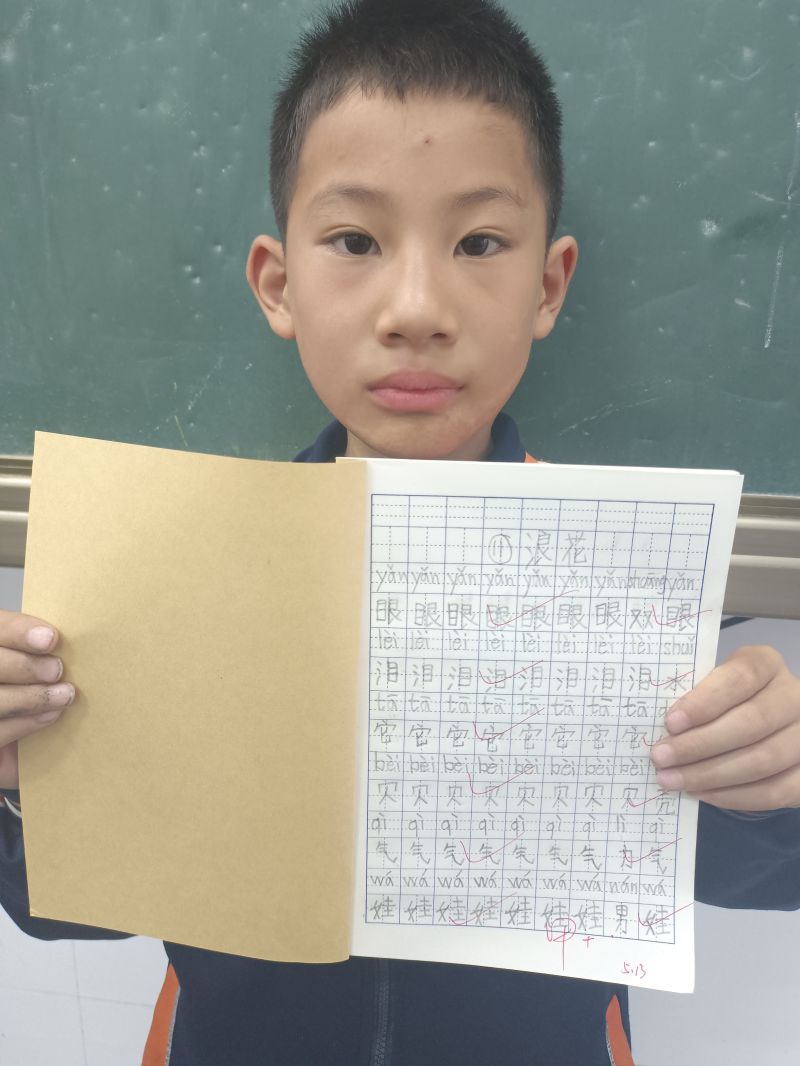 ⑪ 浪花
yǎn yǎn yǎn yǎn yǎn yǎn yǎn shuāng yǎn
眼 眼 眼 眼 眼 眼 眼 双 眼
lèi lèi lèi lèi lèi lèi lèi lèi shuǐ
泪 泪 泪 泪 泪 泪 泪 泪 水
tā tā tā tā tā tā tā tā
它 它 它 它 它 它 它 它
bèi bèi bèi bèi bèi bèi bèi bèi
贝 贝 贝 贝 贝 贝 贝 贝 壳
qì qì qì qì qì qì qì lì qì
气 气 气 气 气 气 气 力 气
wá wá wá wá wá wá wá nán wá
娃 娃 娃 娃 娃 娃 娃 男 娃
甲+
5.13